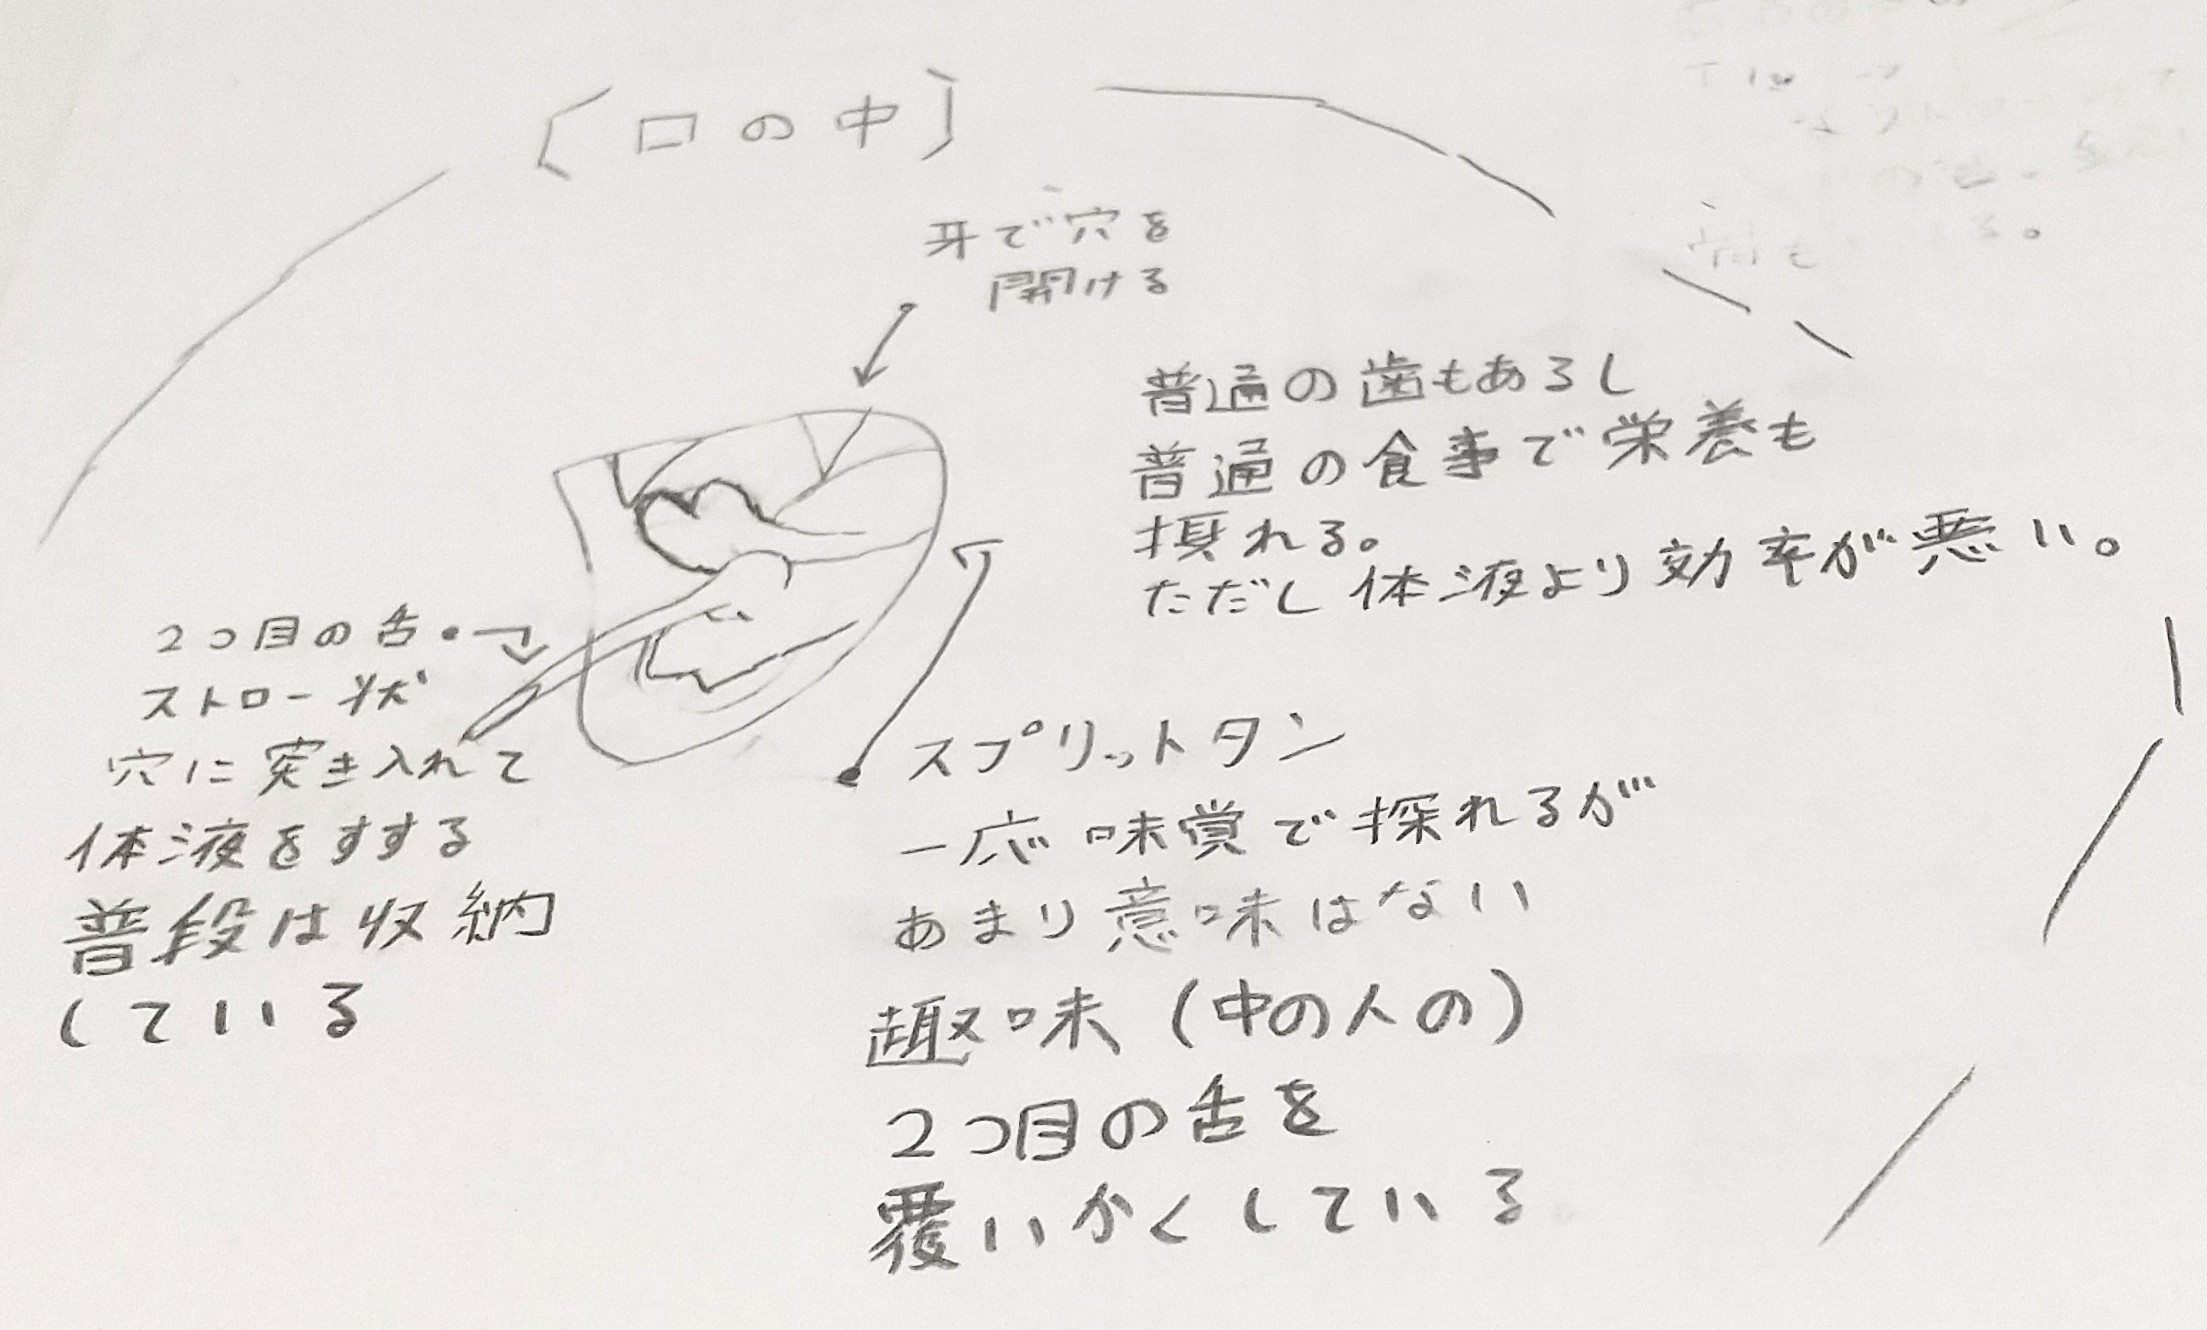 〔口の中〕
牙で穴を
開ける
普通の歯もあるし
普通の食事で栄養も
摂れる。
ただし体液より効率が悪い。
2つ目の舌
ストロー状
穴に突き入れて
体液をすする
普段は収納
している
スプリットタン
一応味覚で探れるが
あまり意味はない
趣味(中の人の)
2つ目の舌を
覆いかくしている